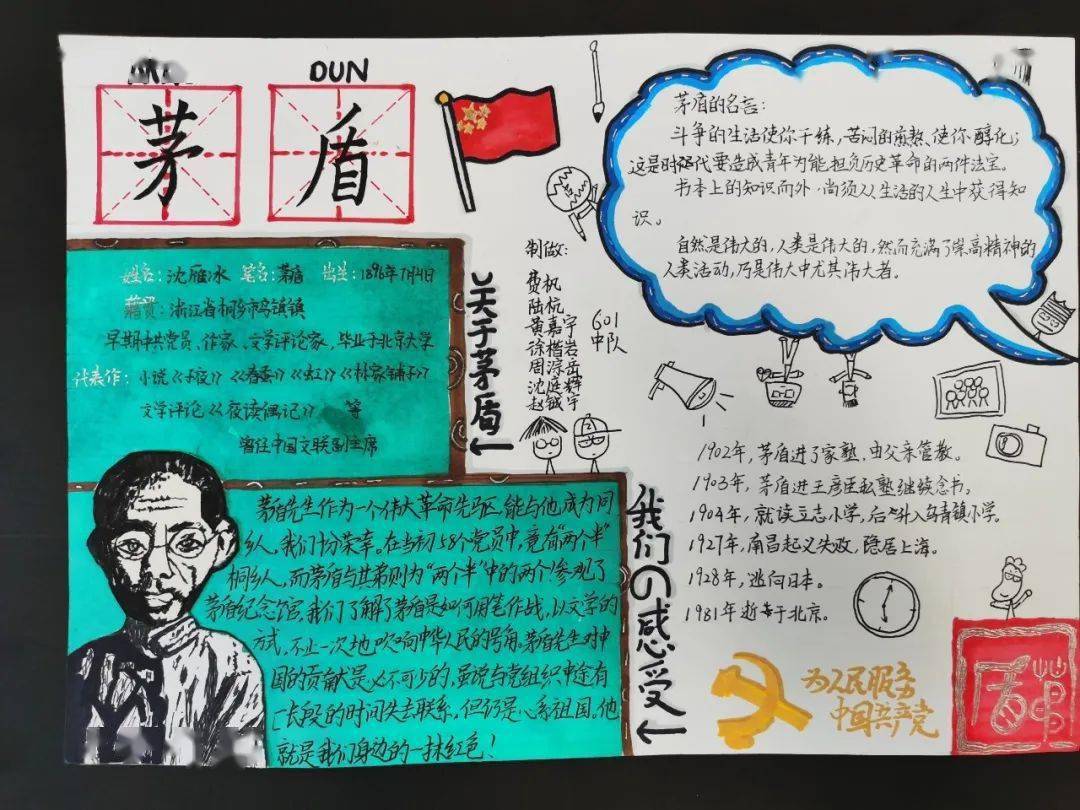 DUN
茅 盾
茅盾的名言:
斗争的生活使你干练,苦闷的煎熬使你醇化;
这是时代要造成青年为能担负历史革命的两件法宝。
书本上的知识而外,尚须从生活的人生中获得知
识。
自然是伟大的,人类是伟大的,然而充满了崇高精神的
人类活动,乃是伟大中尤其伟大者。
姓名:沈雁冰 笔名:茅盾 出生:1896年7月4日
籍贯:浙江省桐乡市乌镇镇
早期中共党员、作家、文学评论家,毕业于北京大学
代表作:小说《子夜》《春蚕》《虹》《林家铺子》
文学评论《夜读偶记》 等
曾任中国文联副主席
关于茅盾
制做:
费帆
陆杭
黄嘉宇
徐楷岩
周涤岳
沈庭辉
赵钺宇
601
中队
1902年,茅盾进了家塾,由父亲管教。
1903年,茅盾进王彦臣私塾继续念书。
1904年,就读立志小学,后升入乌青镇小学。
1927年,南昌起义失败,隐居上海。
1928年,逃向日本。
1981年逝于北京。
我们の感受
茅盾先生作为一个伟大革命先驱,能与他成为同
乡人,我们十分荣幸。在当初58个党员中,竟有“两个半”
桐乡人,而茅盾与其弟则为“两个半”中的两个!参观了
茅盾纪念馆,我们了解了茅盾是如何用笔作战,以文学的
方式,不止一次地吹响中华人民的号角。茅盾先生对中
国的贡献是必不可少的,虽说与党组织中途有
一长段的时间失去联系,但仍是心系祖国。他
就是我们身边的一抹红色!
为人民服务
中国共产党
茅盾